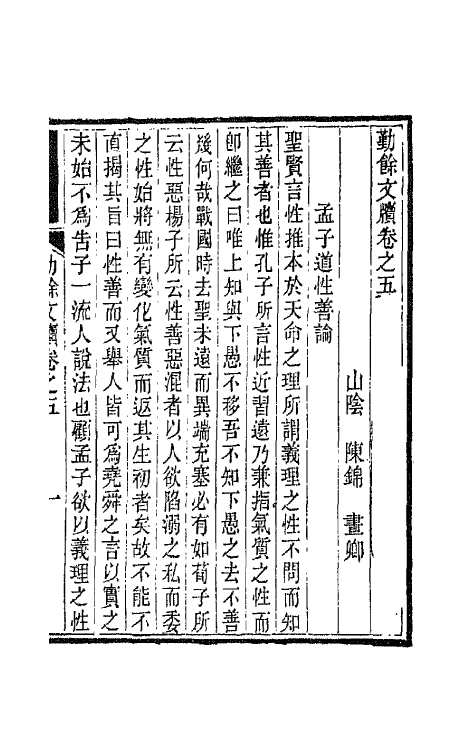 勤餘文牘卷之五
山陰　陳錦　晝卿
孟子道性善論
聖賢言性推本於天命之理所謂義理之性不問而知
其善者也惟孔子所言性近習遠乃兼指氣質之性而
卽繼之曰唯上知與下愚不移吾不知下愚之去不善
幾何哉戰國時去聖未遠而異端充塞必有如荀子所
云性惡楊子所云性善惡混者以人欲陷溺之私而委
之性始將無有變化氣質而返其生初者矣故不能不
直揭其旨曰性善而又舉人皆可爲堯舜之言以實之
未始不爲告子一流人說法也顧孟子欲以義理之性
勤餘文牘卷之五
一